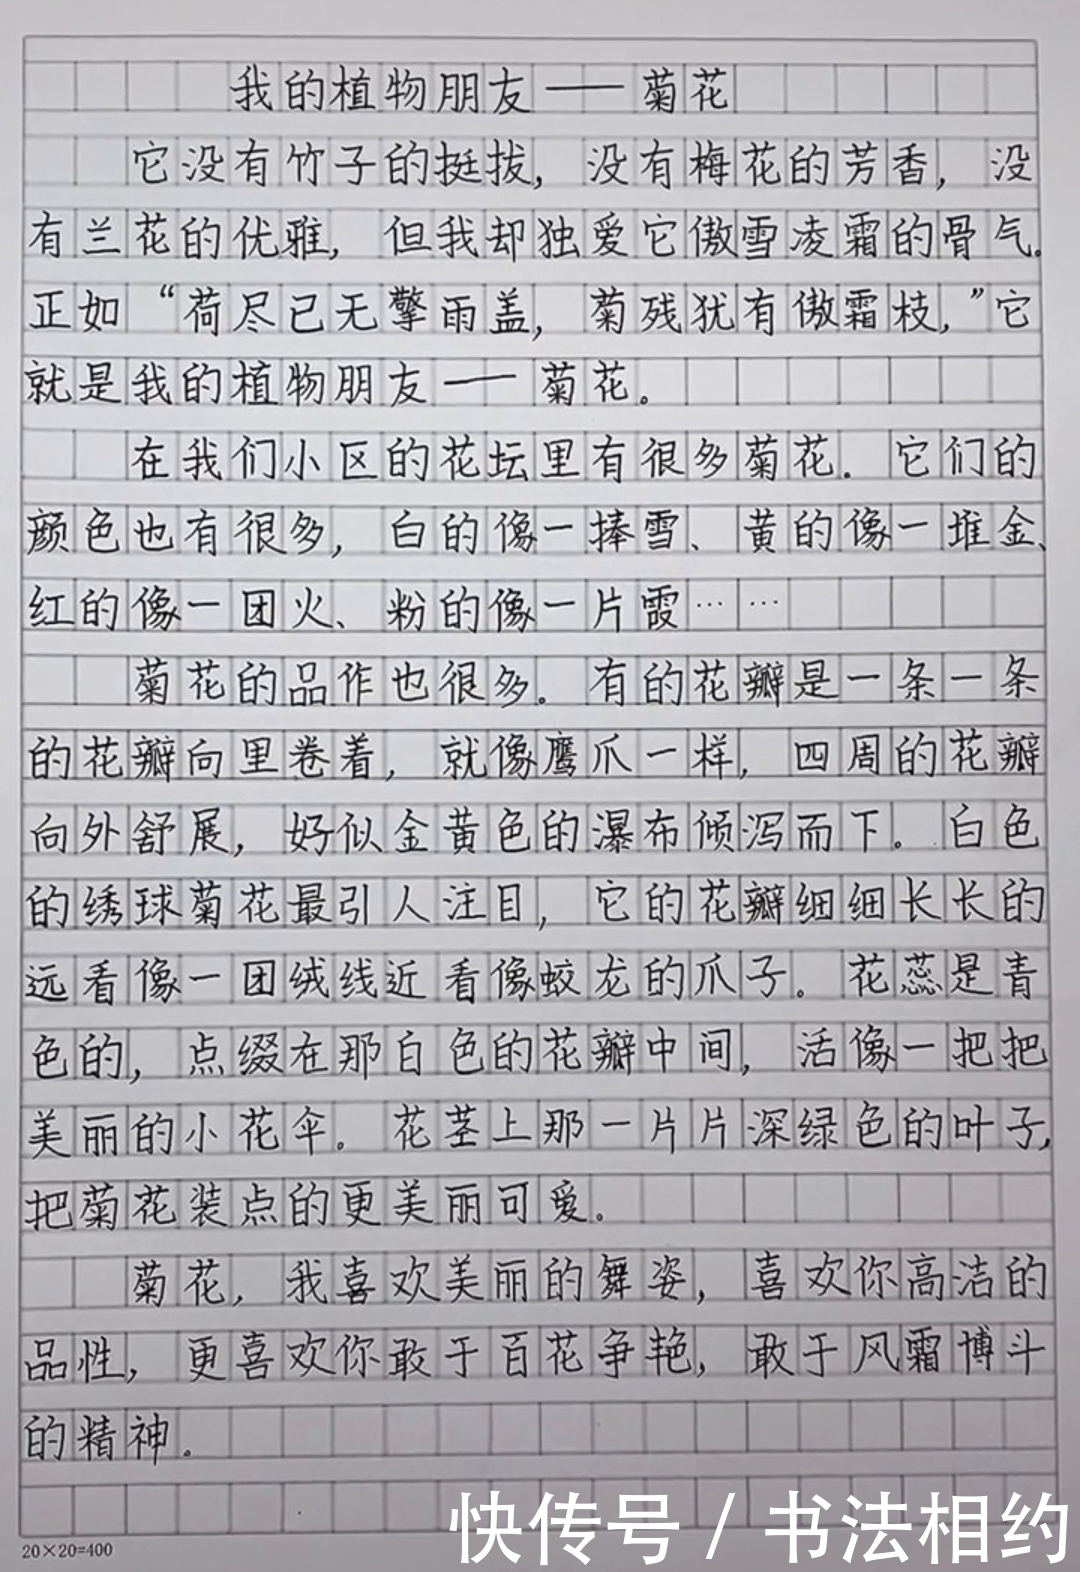 我的植物朋友——菊花
它没有竹子的挺拔，没有梅花的芳香，没
有兰花的优雅，但我却独爱它傲雪凌霜的骨气.
正如“荷尽已无擎雨盖，菊残犹有傲霜枝，”它
就是我的植物朋友——菊花。
在我们小区的花坛里有很多菊花．它们的
颜色也有很多，白的像一捧雪、黄的像一堆金、
红的像一团火、粉的像一片霞……
菊花的品作也很多。有的花瓣是一条一条
的花瓣向里卷着，就像鹰爪一样，四周的花瓣
向外舒展，好似金黄色的瀑布倾泻而下。白色
的绣球菊花最引人注目，它的花瓣细细长长的
远看像一团绒线近看像蛟龙的爪子。花蕊是青
色的，点缀在那白色的花瓣中间，活像一把把
美丽的小花伞。花茎上那一片片深绿色的叶子，
把菊花装点的更美丽可爱。
菊花，我喜欢美丽的舞姿，喜欢你高洁的
品性，更喜欢你敢于百花争艳，敢于风霜博斗
的精神。
20×20=400
快传号 / 书法相约